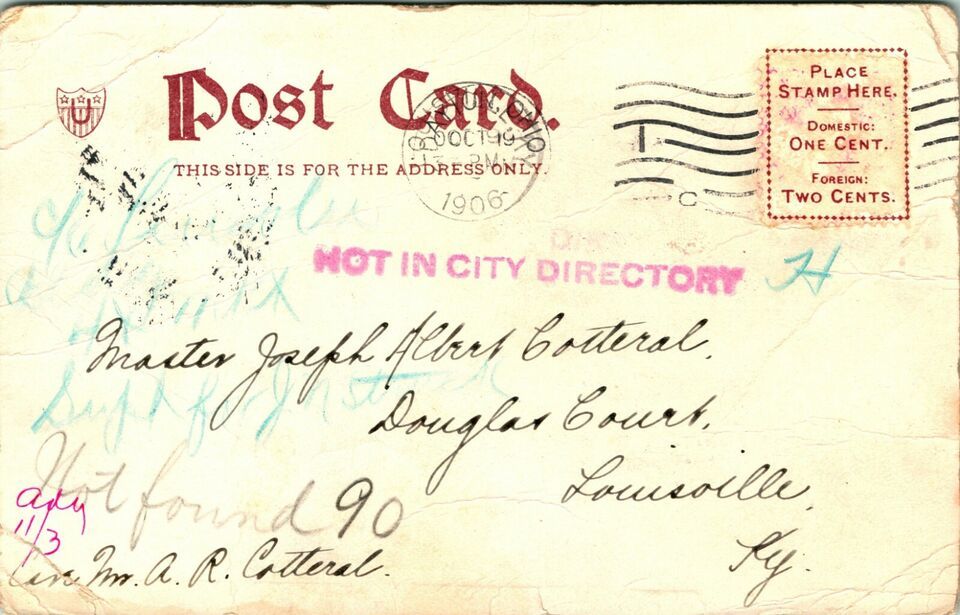 Post Card.
THIS SIDE IS FOR THE ADDRESS ONLY.
U
OCT 19
1906
C
PLACE
STAMP HERE.
DOMESTIC:
ONE CENT.
FOREIGN:
TWO CENTS.
NOT IN CITY DIRECTORY
H
Master Joseph Albert Cotteral.
Douglas Court.
Louisville
Ky.
Not found 90
Adv
11/3
Care Mr. A. R. Cotteral.